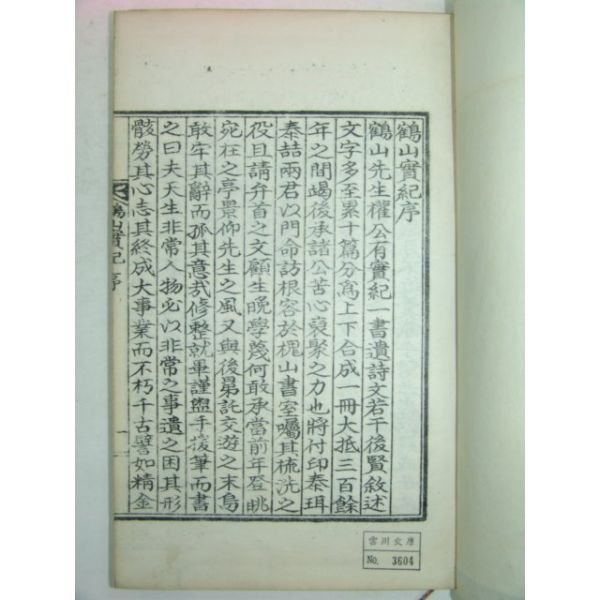 鶴山實紀序
鶴山先生權公有實紀一書遺詩文若干後賢敘述
文字多至累十篇分爲上下合成一冊大抵三百餘
年之間竭後承諸公苦心裒聚之力也將付印泰珥
泰喆兩君以門命訪根容於槐山書室囑其梳洗之
役且請弁首之文顧生晩學蔑何敢承當前年登眺
宛在之亭景仰先生之風又與後昆託交遊之末烏
敢牢其辭而孤其意哉修整就畢謹盥手援筆而書
之曰夫天生非常人物必以非常之事遺之困其形
骸勞其心志其終成大事業而不朽千古譬如精金
鶴山實紀 序
一
雲川文庫
No. 3604